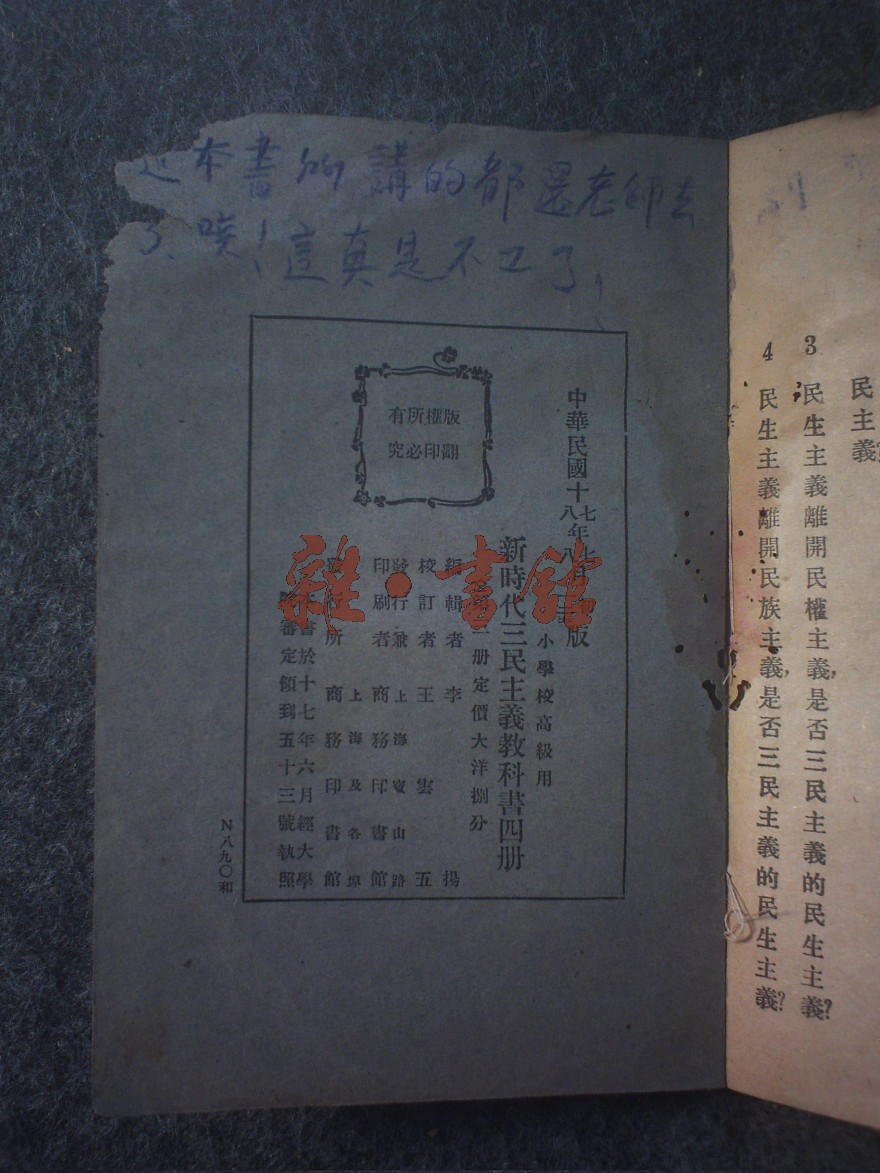 本書所講的都還老師去
了、唉！這真是不工了，
版權所有
翻印必究
中華民國十七年七月
八年八
版
小學校高級用
新時代三民主義教科書四册
第二册定價大洋捌分
編輯者李揚
校訂者王雲五
發行兼上海寶山路
印刷者商務印書館
發行所上海及各埠商務印書館
本書於十七年六月經大學
審定領到五十三號執照
N八九〇和
民主義
3 民生主義離開民權主義，是否三民主義的民生主義？
4 民生主義離開民族主義，是否三民主義的民生主義？
雜·書館